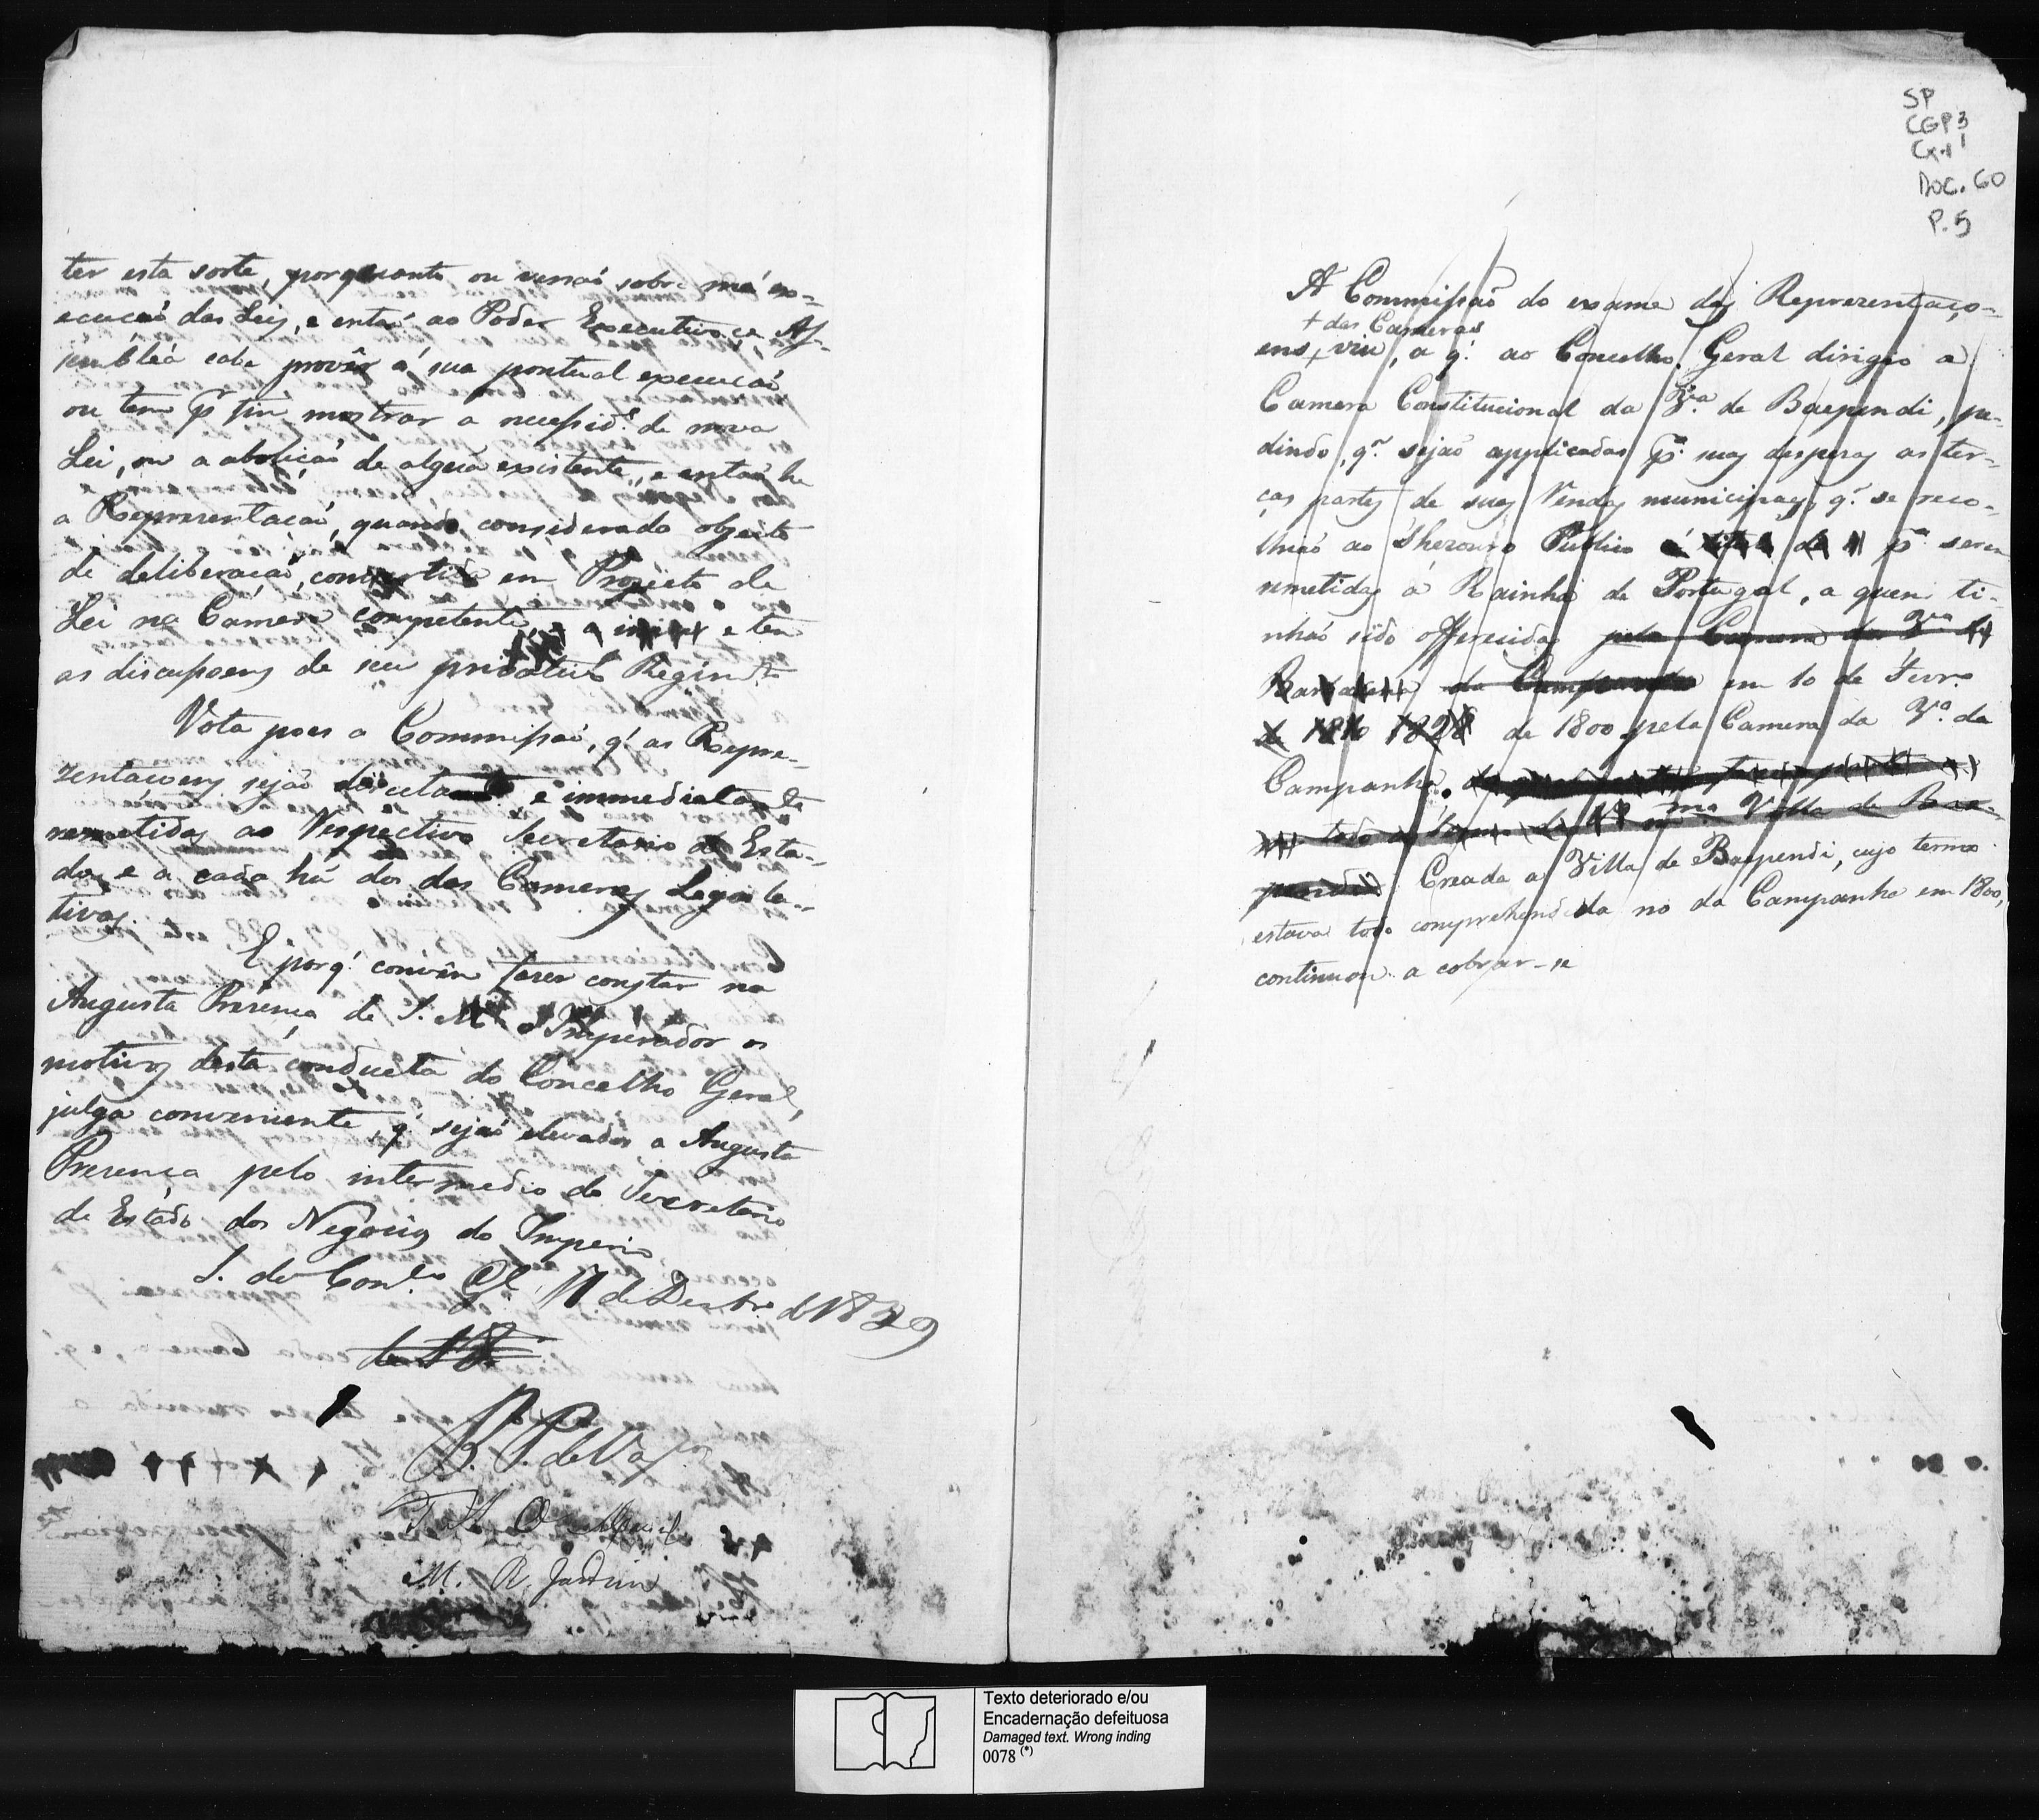 ter esta sorte, porquanto ou versaõ sobre má ex-
ecucaõ das Leis, e entaõ ao Poder Executivo, e As-
sembléa cabe provêr á sua pontual execucaõ
ou tem pr. fim mostrar a necessid.e de nova
Lei, ou a aboliçaõ de algũa existente, e entaõ he
a Reprezentaçaõ, quando considerada objecto
de deliberaçaõ, convertida em Projecto de
Lei na Camera competente, e tem
as discussoens de seu Regim.to
Vota pois a Commissaõ, q' as Repre-
zentacoens sejaõ e immediatam.te
remetidas ao Respectivo Secretario de Esta-
do, e a cada hũ dos das Cameras Legisla-
tivas.
E porq' convêm fazer constar na
Augusta Presença de S. M. o Imperador os
motivos desta conducta do Concelho Geral,
julga conveniente, q' sejaõ elevados a Augusta
Presença pelo intermedio do Secretario
de Estado dos Negocios do Imperio
S. do Con.lo G.l 11 de Dezbro d 1829
B. P. de Vas.cos
M. R. Jardim
SP
CGP3
Cx.1
Doc. 60
P. 5
A Commissaõ do exame das Reprezentaço-
+ das Cameras
ens, viu, a q' ao Concelho Geral dirigio a
Camera Constitucional da Va. de Baependi, pe-
dindo, q' sejaõ applicadas pa. suas despezas as ter-
ças partes de suas Rendas municipaes, q' se reco-
lhiaõ ao Thezouro Publico pa. serem
remetidas á Rainha de Portugal, a quem ti-
nhaõ sido offerecidas pela Camera da Va. de
da Campanha em 10 de Fevr.o
de 1828 de 1800 pela Camera da Va. da
Campanha.
todo ma Villa de Bae-
pendi Creada a Villa de Baependi, cujo termo
estava todo comprehendida no da Campanha em 1800,
continuou a cobrar-se
Texto deteriorado e/ou
Encadernação defeituosa
Damaged text. Wrong inding
0078 (*)